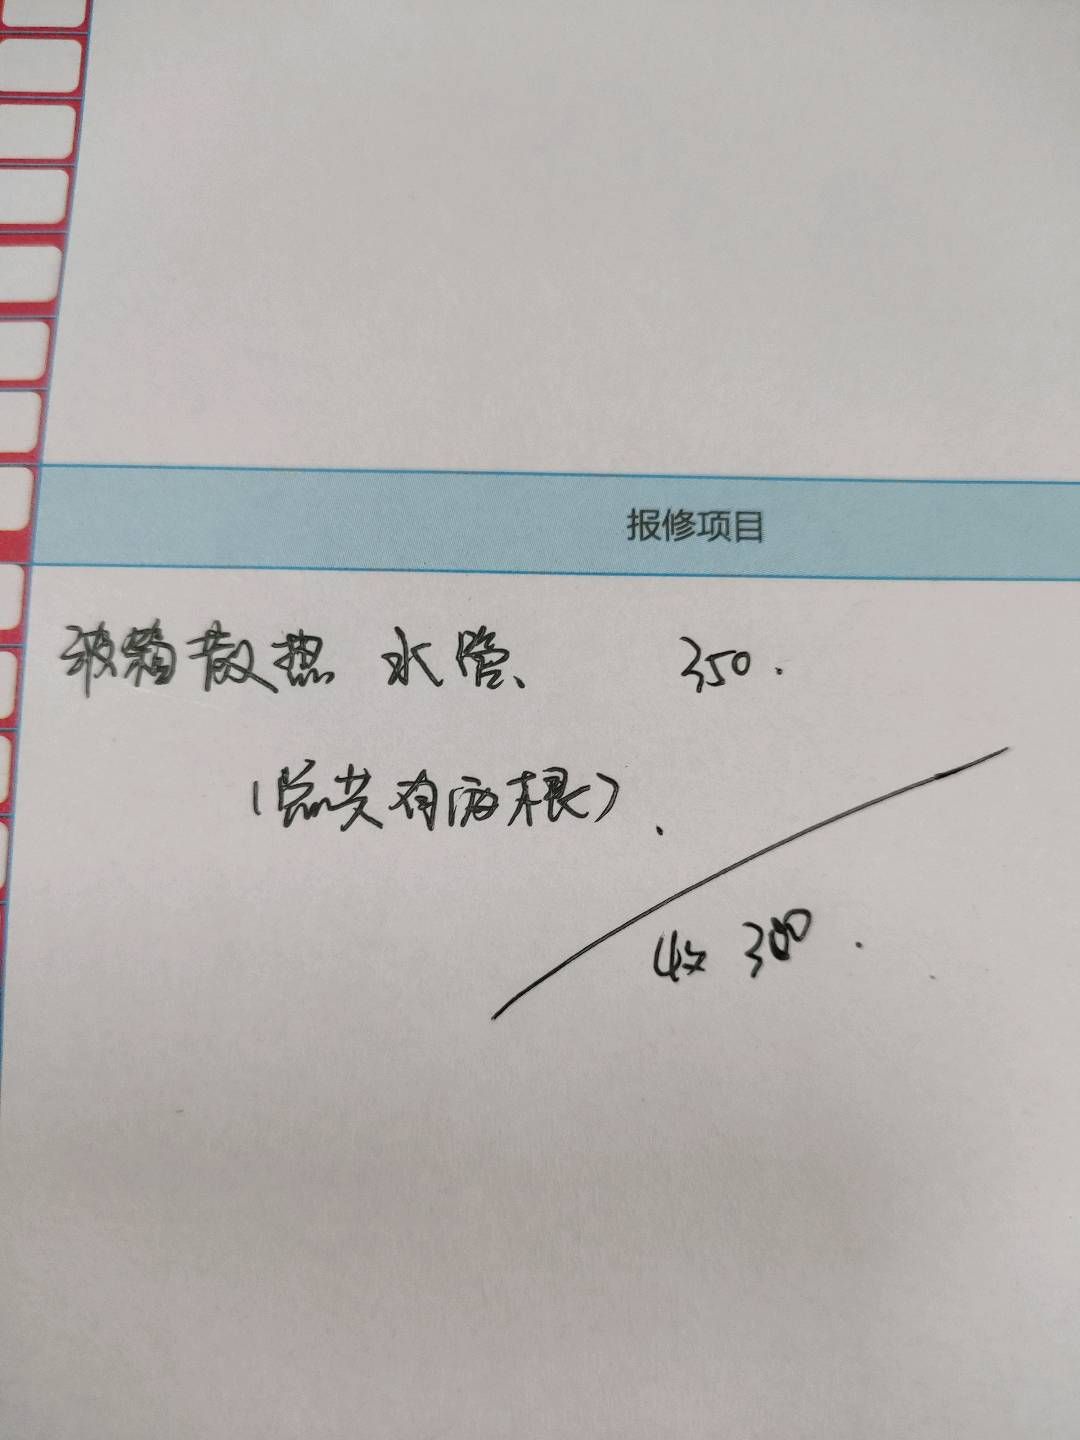 报修项目
波箱散热 水管、 350.
(总共有两根).
收 300.